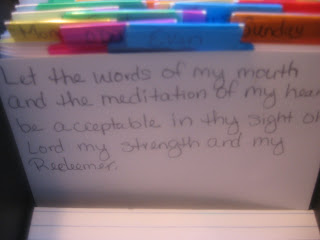 Mon
Even
Sunday
Let the words of my mouth
and the meditation of my hear
be acceptable in thy sight O
Lord my strength and my
Redeemer.